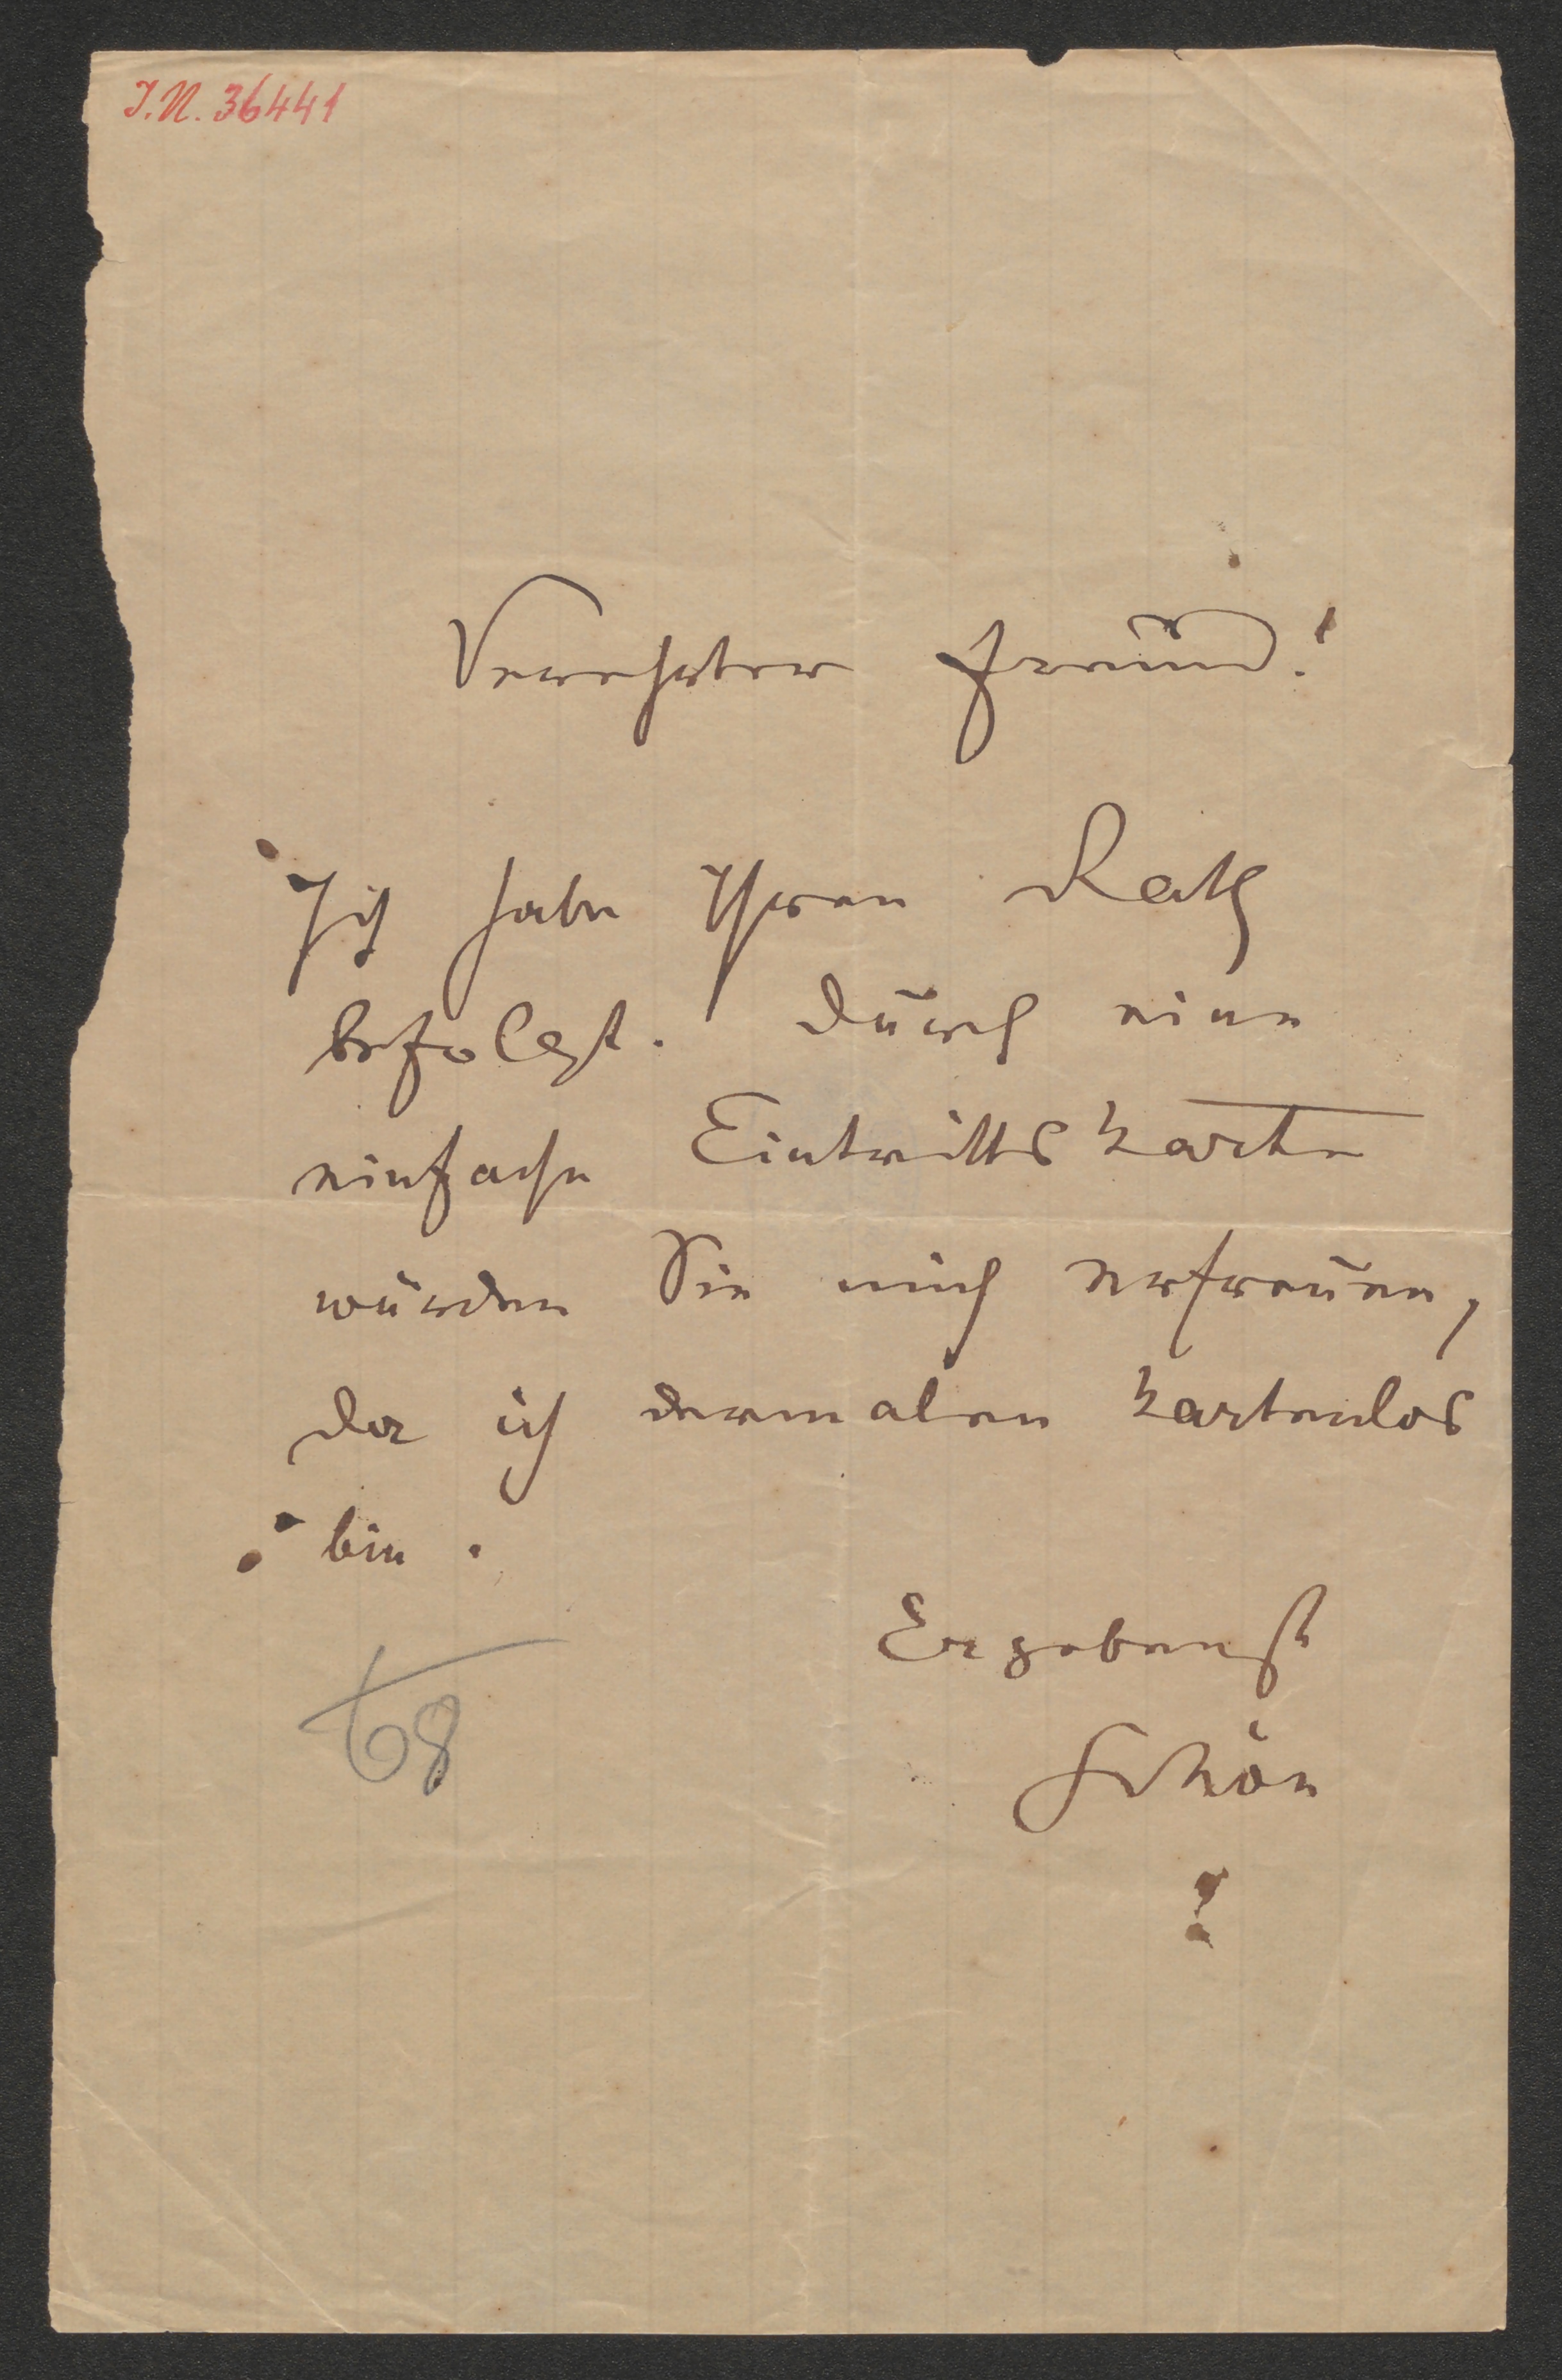 J.N. 36441
Verehrter Freund!
Ich habe Ihren Rath
befolgt. Durch eine
einfache Eintrittskarte
würden Sie mich erfreuen,
da ich dermalen kartenlos
bin.
Ergebenst
Schön
68